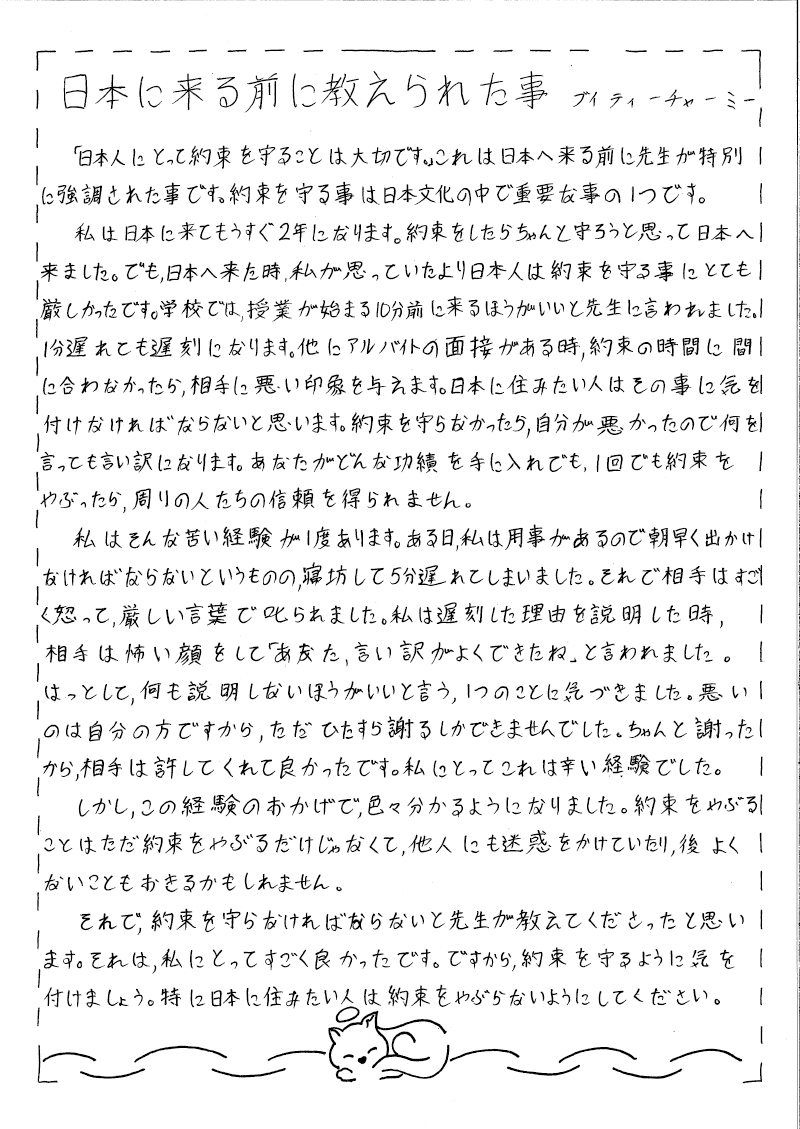 日本に来る前に教えられた事 ブイ ティーチャーミー
「日本人にとって約束を守ることは大切です。」これは日本へ来る前に先生が特別
に強調された事です。約束を守る事は日本文化の中で重要な事の1つです。
私は日本に来てもうすぐ2年になります。約束をしたらちゃんと守ろうと思って日本へ
来ました。でも,日本へ来た時,私が思っていたより日本人は約束を守る事にとても
厳しかったです。学校では,授業が始まる10分前に来るほうがいいと先生に言われました。
1分遅れても遅刻になります。他にアルバイトの面接がある時,約束の時間に間
に合わなかったら,相手に悪い印象を与えます。日本に住みたい人はその事に気を
付けなければならないと思います。約束を守らなかったら,自分が悪かったので何を
言っても言い訳になります。あなたがどんな功績を手に入れでも,1回でも約束を
やぶったら,周りの人たちの信頼を得られません。
私はそんな苦い経験が1度あります。ある日,私は用事があるので朝早く出かけ
なければならないというものの,寝坊して5分遅れてしまいました。それで相手はすご
く怒って,厳しい言葉で叱られました。私は遅刻した理由を説明した時,
相手は怖い顔をして「あなた,言い訳がよくできたね」と言われました。
はっとして,何も説明しないほうがいいと言う,1つのことに気づきました。悪い
のは自分の方ですから,ただひたすら謝るしかできませんでした。ちゃんと謝った
から,相手は許してくれて良かったです。私にとってこれは辛い経験でした。
しかし,この経験のおかげで,色々分かるようになりました。約束をやぶる
ことはただ約束をやぶるだけじゃなくて,他人にも迷惑をかけていたり,後よく
ないこともおきるかもしれません。
それで,約束を守らなければならないと先生が教えてくださったと思い
ます。それは,私にとってすごく良かったです。ですから,約束を守るように気を
付けましょう。特に日本に住みたい人は約束をやぶらないようにしてください。